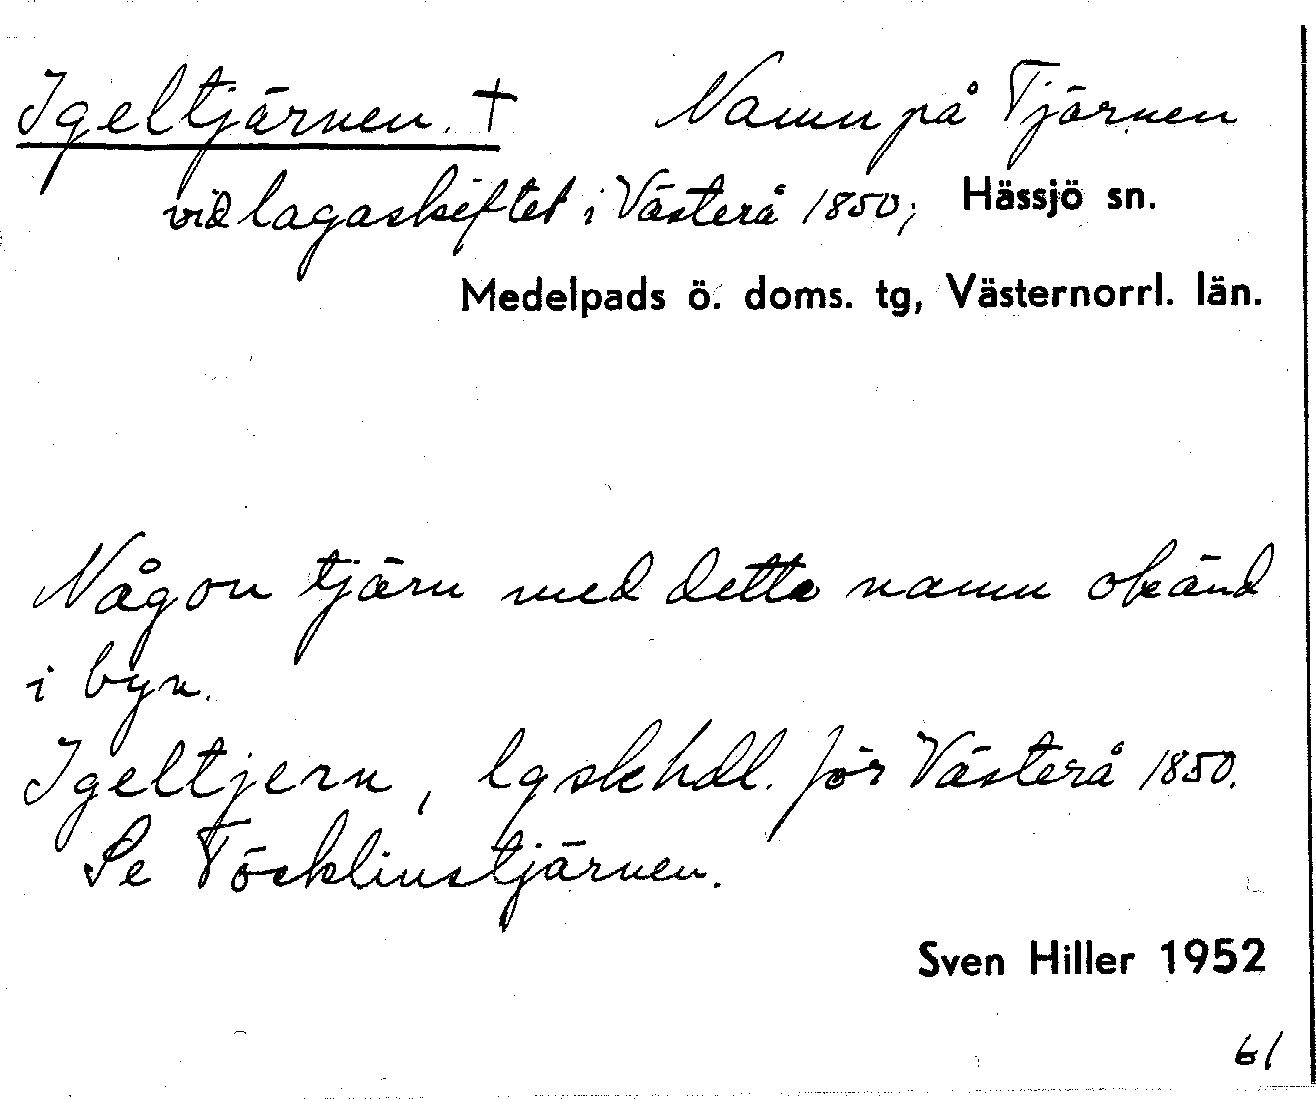 Igeltjärnen. † Namn på Tjärnen
vid lagaskiftet i Västerå 1850; Hässjö sn.
Medelpads ö. doms. tg, Västernorrl. län.
Någon tjärn med detta namn okänd
i byn.
Igeltjern, lgskhdl. för Västerå 1850.
Se Töcklinstjärnen.
Sven Hiller 1952
61